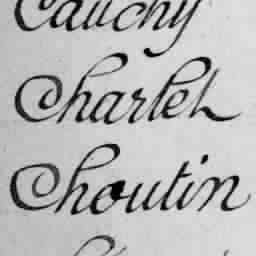 Cauchy
Charlet
Choutin